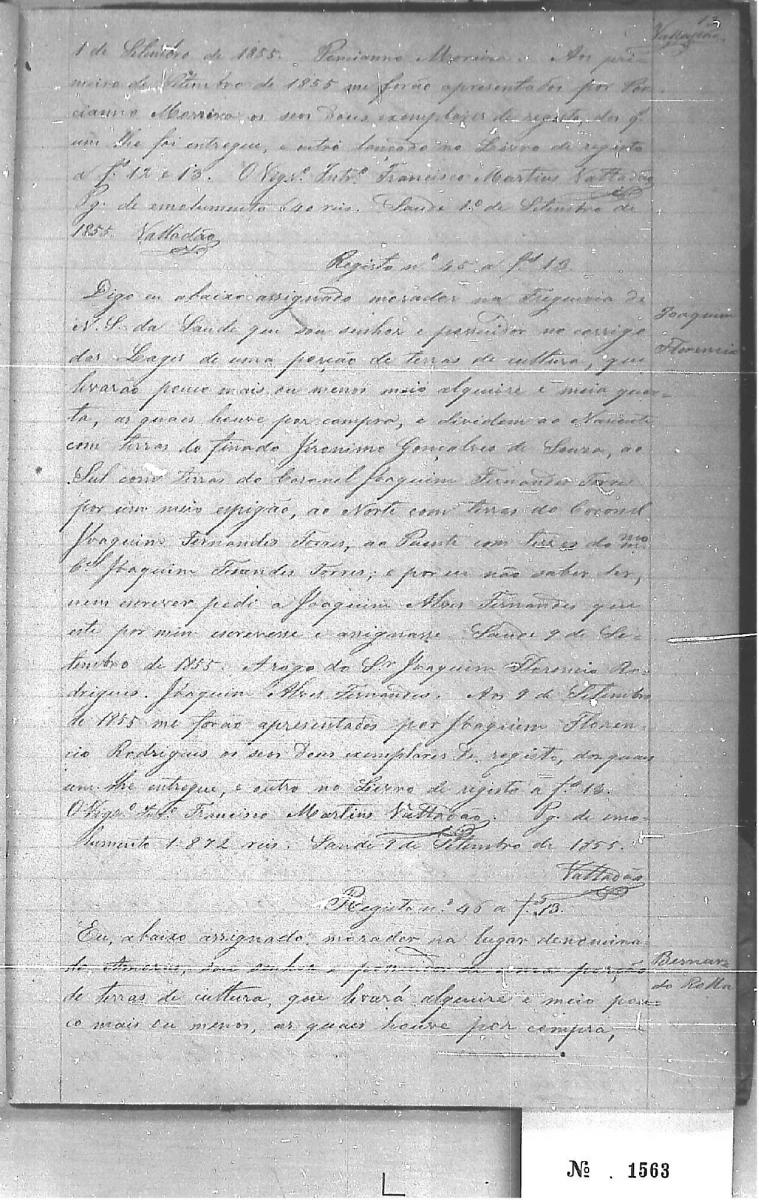 13
Valladão
1 de Setembro de 1855. Poncianno Moreira. Aos pri-
meiro de Setembro de 1855 me forão apresentados por Pon-
cianno Moreira os seos dous exemplares de registo, dos q.
um lhe foi entregue, e outro lançado no Livro de registo
a f.s 12 e 13. O Vigr.o Intr.o Francisco Martins Valladão
Pg. de emolumento 640 reis. Saude 1.o de Setembro de
1855. Valladão
Registo n.o 45 a f.s 13
Joaquim
Florencio
Digo eu abaixo assignado morador na Freguesia de
N. S. da Saude que sou senhor e possuidor no corrego
das Lages de uma porção de terras de cultura, que
levarão pouco mais ou menos meio alqueire e meia quar-
ta, as quaes houve por compra, e dividem ao Nascente
com terras do finado Jeronimo Gonçalves de Souza, ao
Sul com terras do Coronel Joaquim Fernandes Torres
por um meio espigão, ao Norte com terras do Coronel
Joaquim Fernandes Torres, ao Poente com terras do mmo
Cel Joaquim Fernandes Torres; e por eu não saber ler,
nem escrever pedi a Joaquim Alves Fernandes que
este por mim escrevesse e assignasse. Saude 9 de Se-
tembro de 1855. A rogo do Sr. Joaquim Florencio Ro-
drigues. Joaquim Alves Fernandes. Aos 9 de Setembro
de 1855 me forão apresentados por Joaquim Floren-
cio Rodrigues os seos dous exemplares de registo, dos quaes
um lhe entregue, e outro no Livro de registo a f.s 13.
O Vigr.o Intr.o Francisco Martins Valladão. Pg. de emo-
lumento 1.872 reis. Saude 9 de Setembro de 1855.
Valladão
Registo n.o 46 a f.s 13.
Bernar-
do Rolla
Eu, abaixo assignado, morador no lugar denomina-
do, sou senhor e possuidor de uma porção
de terras de cultura, que levará alqueire e meio pou-
co mais ou menos, as quaes houve por compra,
№ . 1563